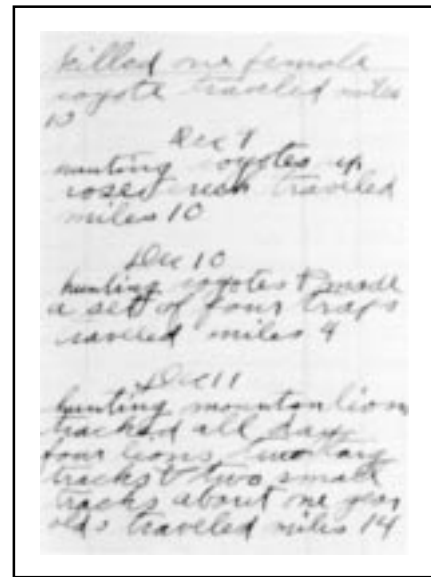 killed one female
coyote traveled miles
10
Dec 9
hunting coyotes up
rose creek traveled
miles 10
Dec 10
hunting coyotes & made
a set of four traps
traveled miles 4
Dec 11
hunting mountan lion
tracked all day
four lions two larg
tracks & two small
tracks about one year
olds traveled miles 14